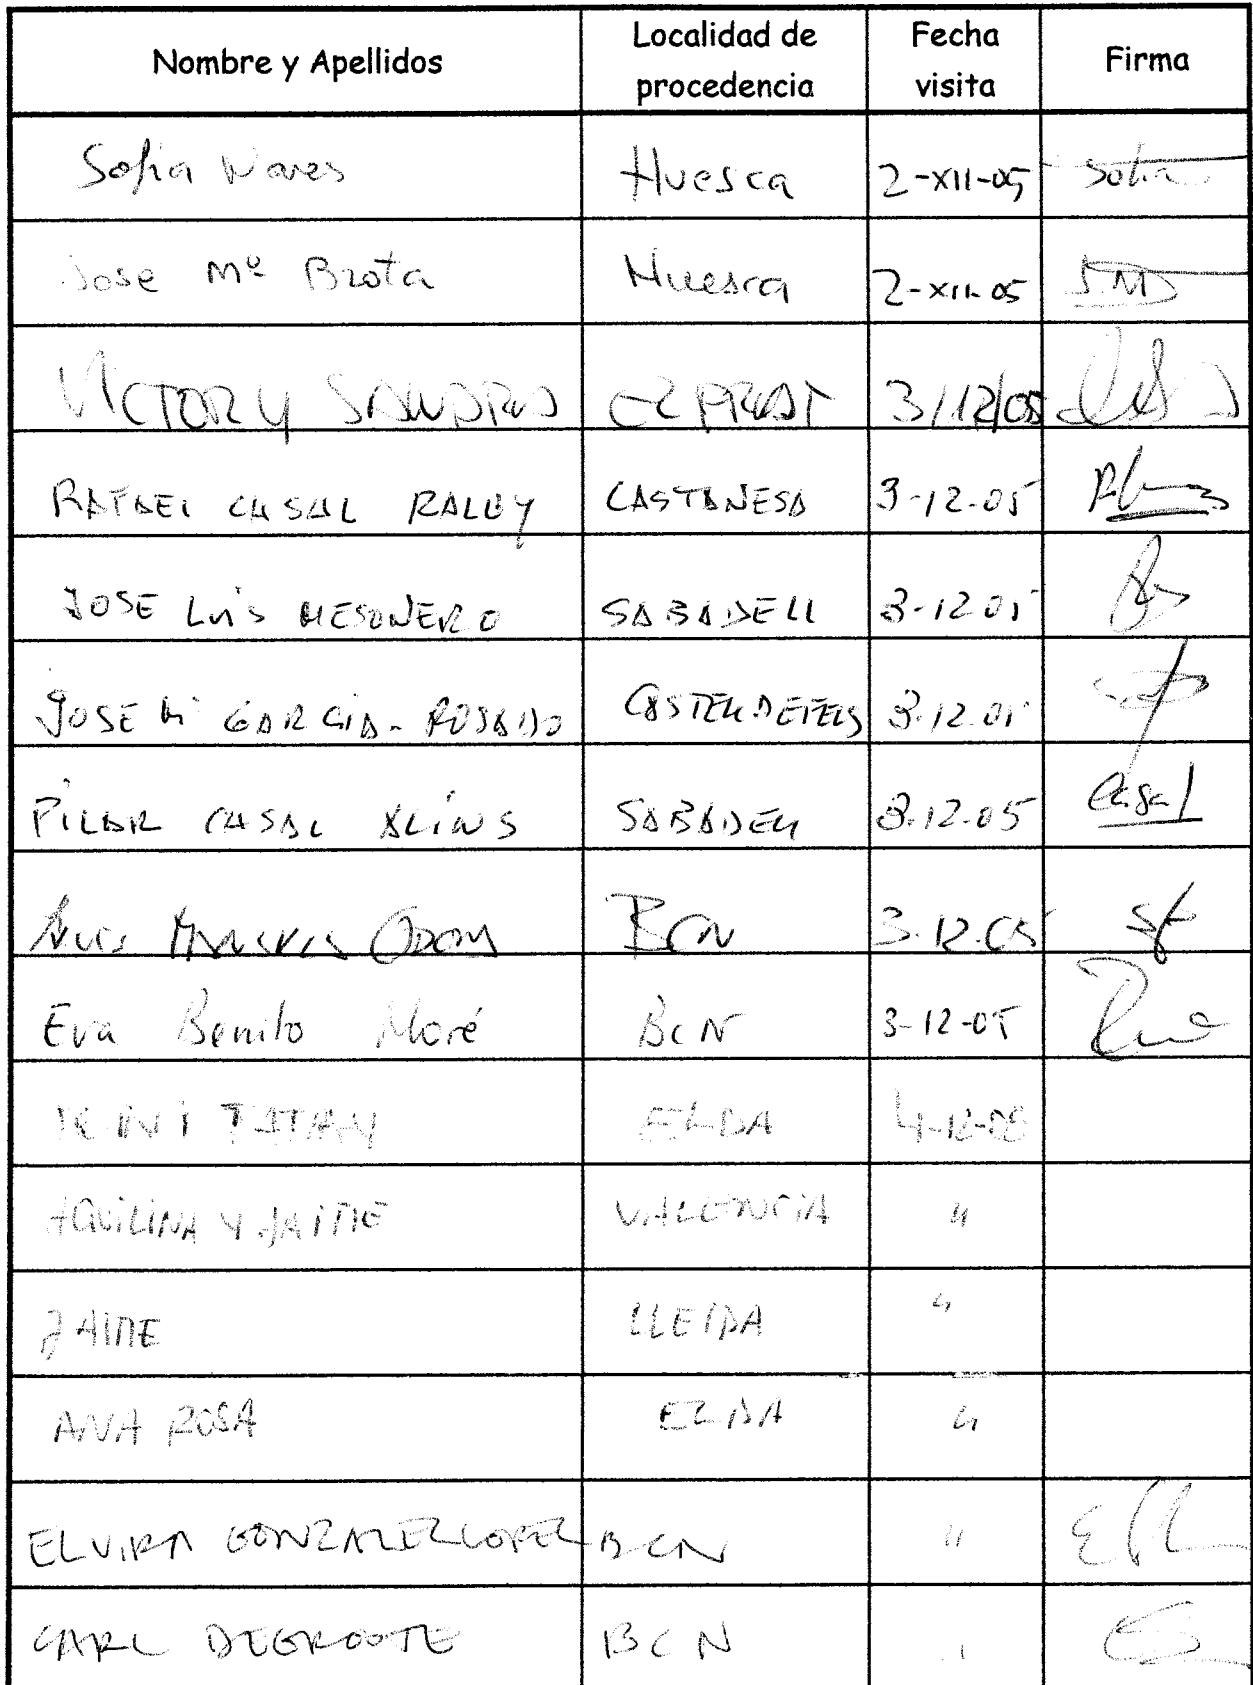 Nombre y Apellidos Localidad de procedencia Fecha visita Firma
Sofia Nares Huesca 2-XII-05 Sofia
Jose Mª Brota Huesca 2-XII-05
VICTOR Y SANDRA EL PRAT 3/12/05
RAFAEL CASAL RALUY CASTANESA 3-12-05
JOSE LUIS MESONERO SABADELL 3-12-05
JOSE Mª GARCIA-ROSADO CASTELLDEFELS 3-12-05
PILAR CASAL ALINS SABADELL 3-12-05 Casal
BCN 3-12-05
Eva Benito Moré BCN 3-12-05
ELDA 4-12-05
AQUILINA Y JAIME VALENCIA "
JAIME LLEIDA "
ANA ROSA ELDA "
ELVIRA GONZALEZ LOPEZ BCN "
CARL DEGROOTE BCN